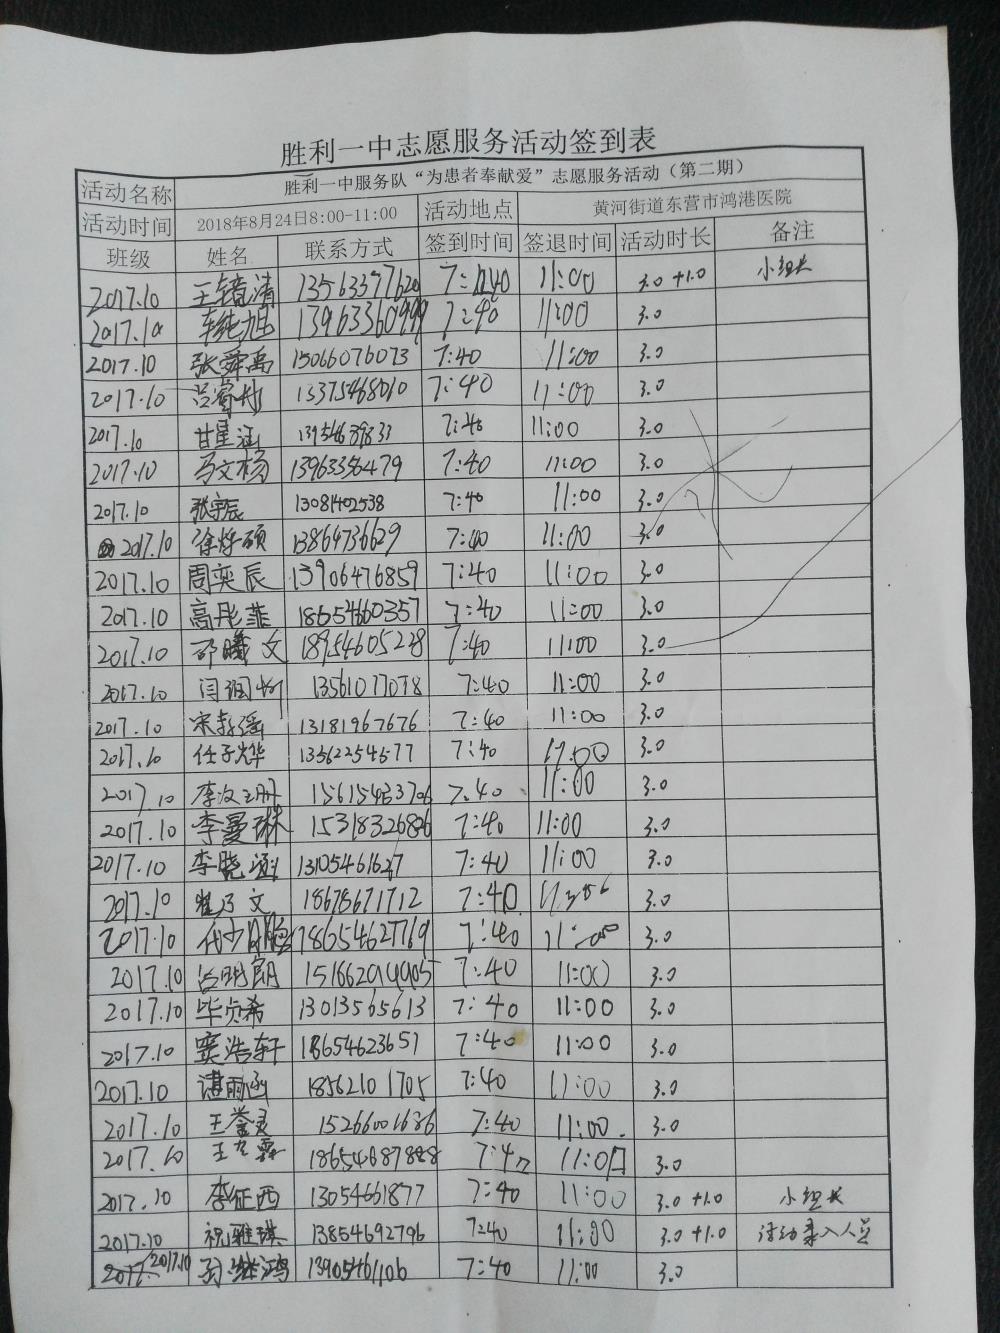 胜利一中志愿服务活动签到表
活动名称 胜利一中服务队“为患者奉献爱”志愿服务活动(第二期)
活动时间 2018年8月24日8:00-11:00 活动地点 黄河街道东营市鸿港医院
班级 姓名 联系方式 签到时间 签退时间 活动时长 备注
2017.10 王镜清 13563377620 7:40 11:00 3.0 +1.0 小组长
2017.10 13963360999 7:40 11:00 3.0
2017.10 张舜禹 15066076073 7:40 11:00 3.0
2017.10 13375468010 7:40 11:00 3.0
2017.10 甘星涵 13954639833 7:40 11:00 3.0
2017.10 马文杨 13963356479 7:40 11:00 3.0
2017.10 张宇辰 13081402538 7:40 11:00 3.0
2017.10 徐烨硕 13864736629 7:40 11:00 3.0
2017.10 周奕辰 13906476859 7:40 11:00 3.0
2017.10 高彤菲 18654660357 7:40 11:00 3.0
2017.10 邵曦文 18954605228 7:40 11:00 3.0
2017.10 13561077078 7:40 11:00 3.0
2017.10 13181967676 7:40 11:00 3.0
2017.10 任子烨 13562254577 7:40 11:00 3.0
2017.10 15615463706 7:40 11:00 3.0
2017.10 李曼琳 15318326826 7:40 11:00 3.0
2017.10 李晓涵 13105461627 7:40 11:00 3.0
2017.10 崔乃文 18678671712 7:40 3.0
2017.10 18654627769 7:40 11:00 3.0
2017.10 7:40 11:00 3.0
2017.10 毕贞希 13013565613 7:40 11:00 3.0
2017.10 窦浩轩 18654623657 7:40 11:00 3.0
2017.10 谌雨函 18562101705 7:40 11:00 3.0
2017.10 王誉灵 15266001686 7:40 11:00 3.0
2017.10 7:40 11:00 3.0
2017.10 李征西 13054661877 7:40 11:00 3.0 +1.0 小组长
2017.10 祝雅琪 13854692796 7:40 11:00 3.0 +1.0 活动录入人员
2017.10 13905461106 7:40 11:00 3.0